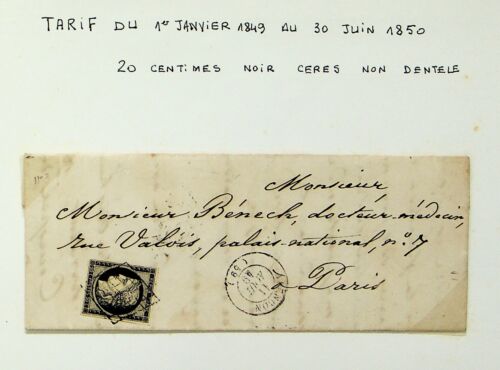 TARIF DU 1er JANVIER 1849 AU 30 JUIN 1850
20 CENTIMES NOIR CERES NON DENTELE
Monsieur,
Monsieur Bénech, docteur-médecin,
rue Valois, palais-national, n°. 7
à Paris